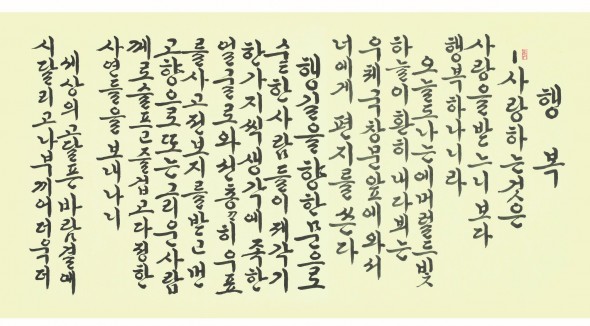 행복
-사랑하는것은
사랑을받느니보다
행복하나니라
오늘도나는에머럴드빛
하늘이환히내다뵈는
우체국창문앞에와서
너에게 편지를 쓴다
행길을향한문으로
숱한사람들이제각기
한가지씩생각에족한
얼굴로와선총〃히우표
를사고전보지를받고먼
고향으로또는그리운사람
께로슬프고즐겁고다정한
사연들을보내나니
세상의고달픈바람결에
시달리고나부끼어더욱더